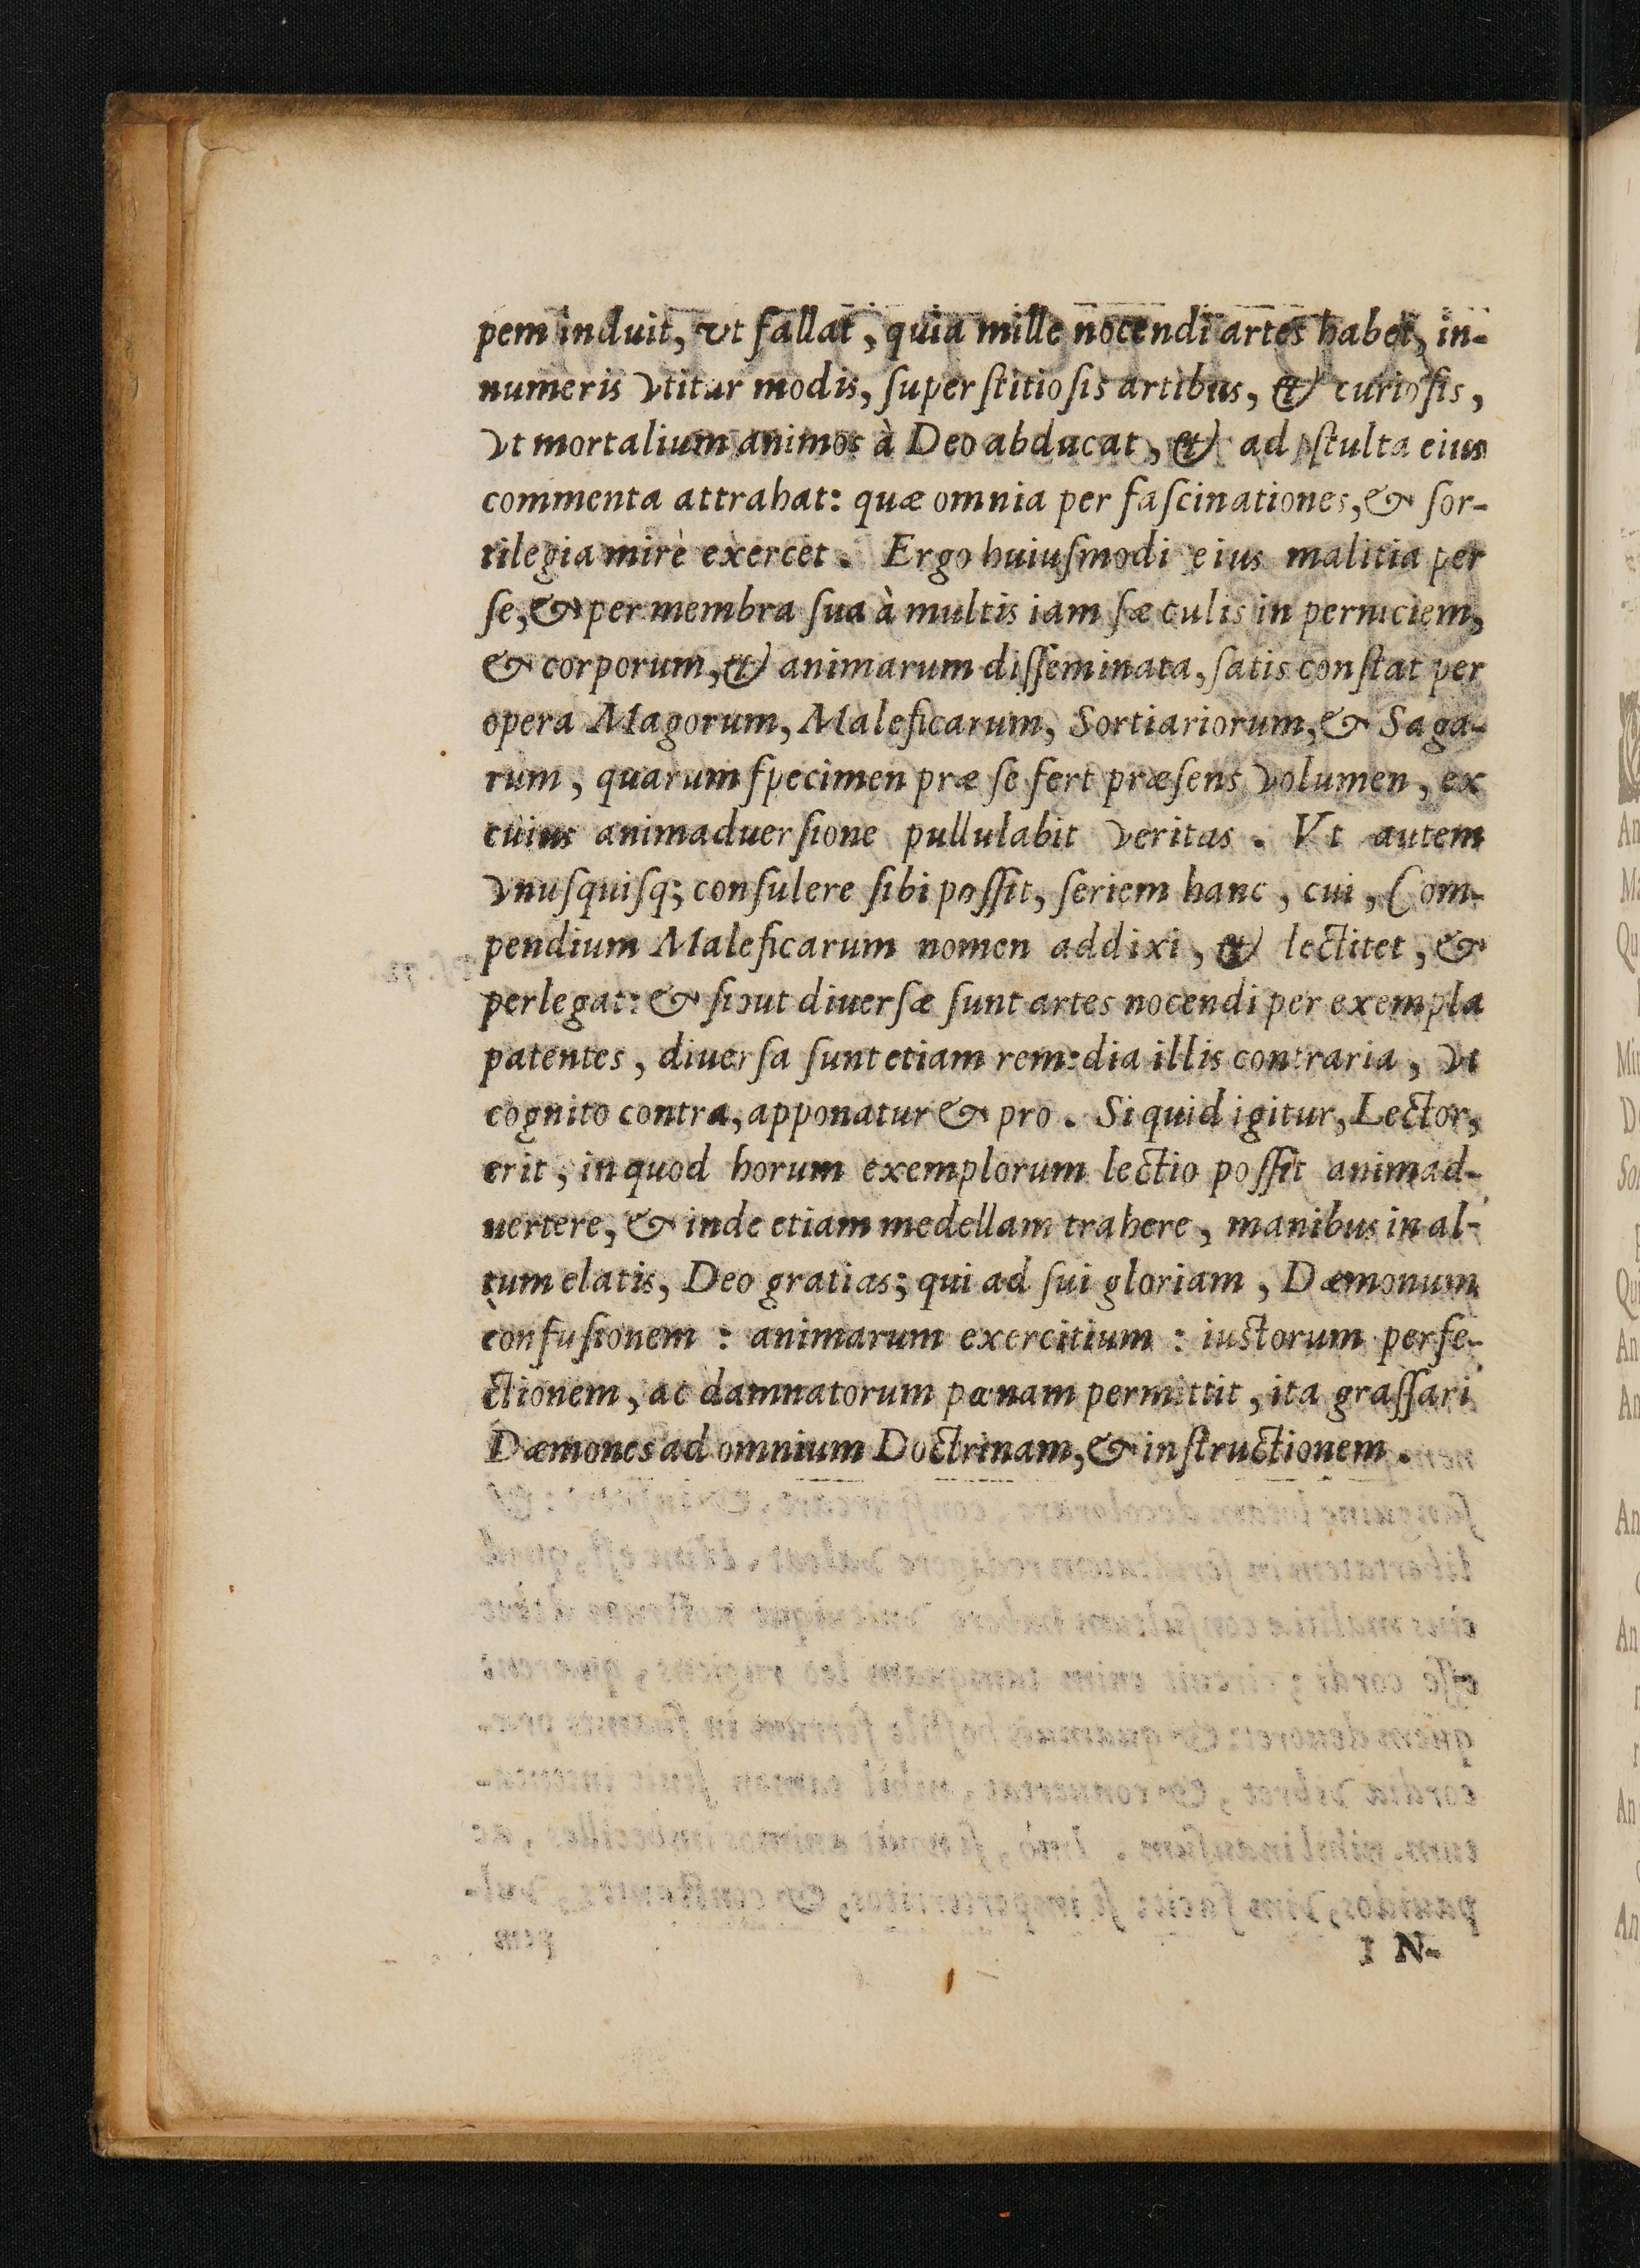 pem induit, vt fallat, quia mille nocendi artes habet, in-
numeris vtitur modis, ſuperſtitioſis artibus, & curioſis,
vt mortalium animos à Deo abducat, & ad ſtulta eius
commenta attrahat: quæ omnia per faſcinationes, & ſor-
tilegia mirè exercet. Ergo huiuſmodi eius malitia per
ſe, & per membra ſua à multis iam ſæculis in perniciem,
& corporum, & animarum diſſeminata, ſatis conſtat per
opera Magorum, Maleficarum, Sortiariorum, & Saga-
rum, quarum ſpecimen præ ſe fert præſens volumen, ex
cuius animaduerſione pullulabit veritas. Vt autem
vnuſquiſq; conſulere ſibi poſſit, ſeriem hanc, cui, Com-
pendium Maleficarum nomen addixi, & lectitet, &
perlegat: & ſicut diuerſæ ſunt artes nocendi per exempla
patentes, diuerſa ſunt etiam remedia illis contraria, vt
cognito contra, apponatur & pro. Si quid igitur, Lector,
erit, in quod horum exemplorum lectio poſſit animad-
uertere, & inde etiam medellam trahere, manibus in al-
tum elatis, Deo gratias; qui ad ſui gloriam, Dæmonum
confuſionem: animarum exercitium: iuſtorum perfe-
ctionem, ac damnatorum pœnam permittit, ita graſſari
Dæmones ad omnium Doctrinam, & inſtructionem.
IN-